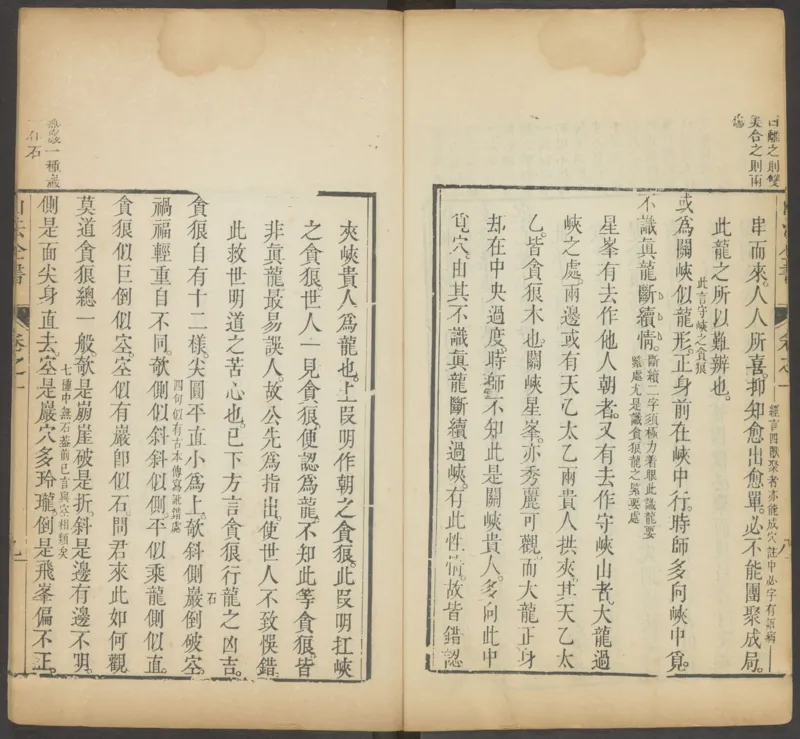 口離之則雙
美合之則兩
傷
串而來。人人所喜。抑知愈出愈單。必不能團聚成局。
經言四獸聚者亦能成穴註中必字有語病
此龍之所以難辨也。
此言守峽之貪狼
或為關峽似龍形。正身前在峽中行。時師多向峽中覔。
不識眞龍斷續情。
斷續二字須極力着眼此識龍要
緊處尤是識貪狼龍之緊要處
星峯有去作他人朝者。又有去作守峽山者。大龍過
峽之處。兩邊或有天乙太乙兩貴人拱夾。其天乙太
乙。皆貪狼木也。關峽星峯。亦秀麗可觀。而大龍正身。
却在中央過度。時師不知此是關峽貴人。多向此中
覓穴。由其不識眞龍斷續過峽。有此性情。故皆錯認
夾峽貴人為龍也。上叚明作朝之貪狼。此叚明扛峽
之貪狼。世人一見貪狼。便認為龍。不知此等貪狼。皆
非眞龍最易誤人。故公先為指出。使世人不致悞錯。
此救世明道之苦心也。已下方言貪狼行龍之凶吉。
貪狼自有十二樣。尖圓平直小為上。欹斜側巖倒破空。
石
禍福輕重自不同。
四句似有古本傳寫訛錯處
欹側似斜斜似側。平似乘龍側似直。
貪狼似巨倒似空。空似有巖卽似石。問君來此如何觀
莫道貪狼總一般。欹是崩崖破是折。斜是邊有邊不明。
側是面尖身直去。空是巖穴多玲瓏。倒是飛峯偏不正。
七種中無石蓋前已言與空相類矣
一種巖
石
山法全書
卷之一